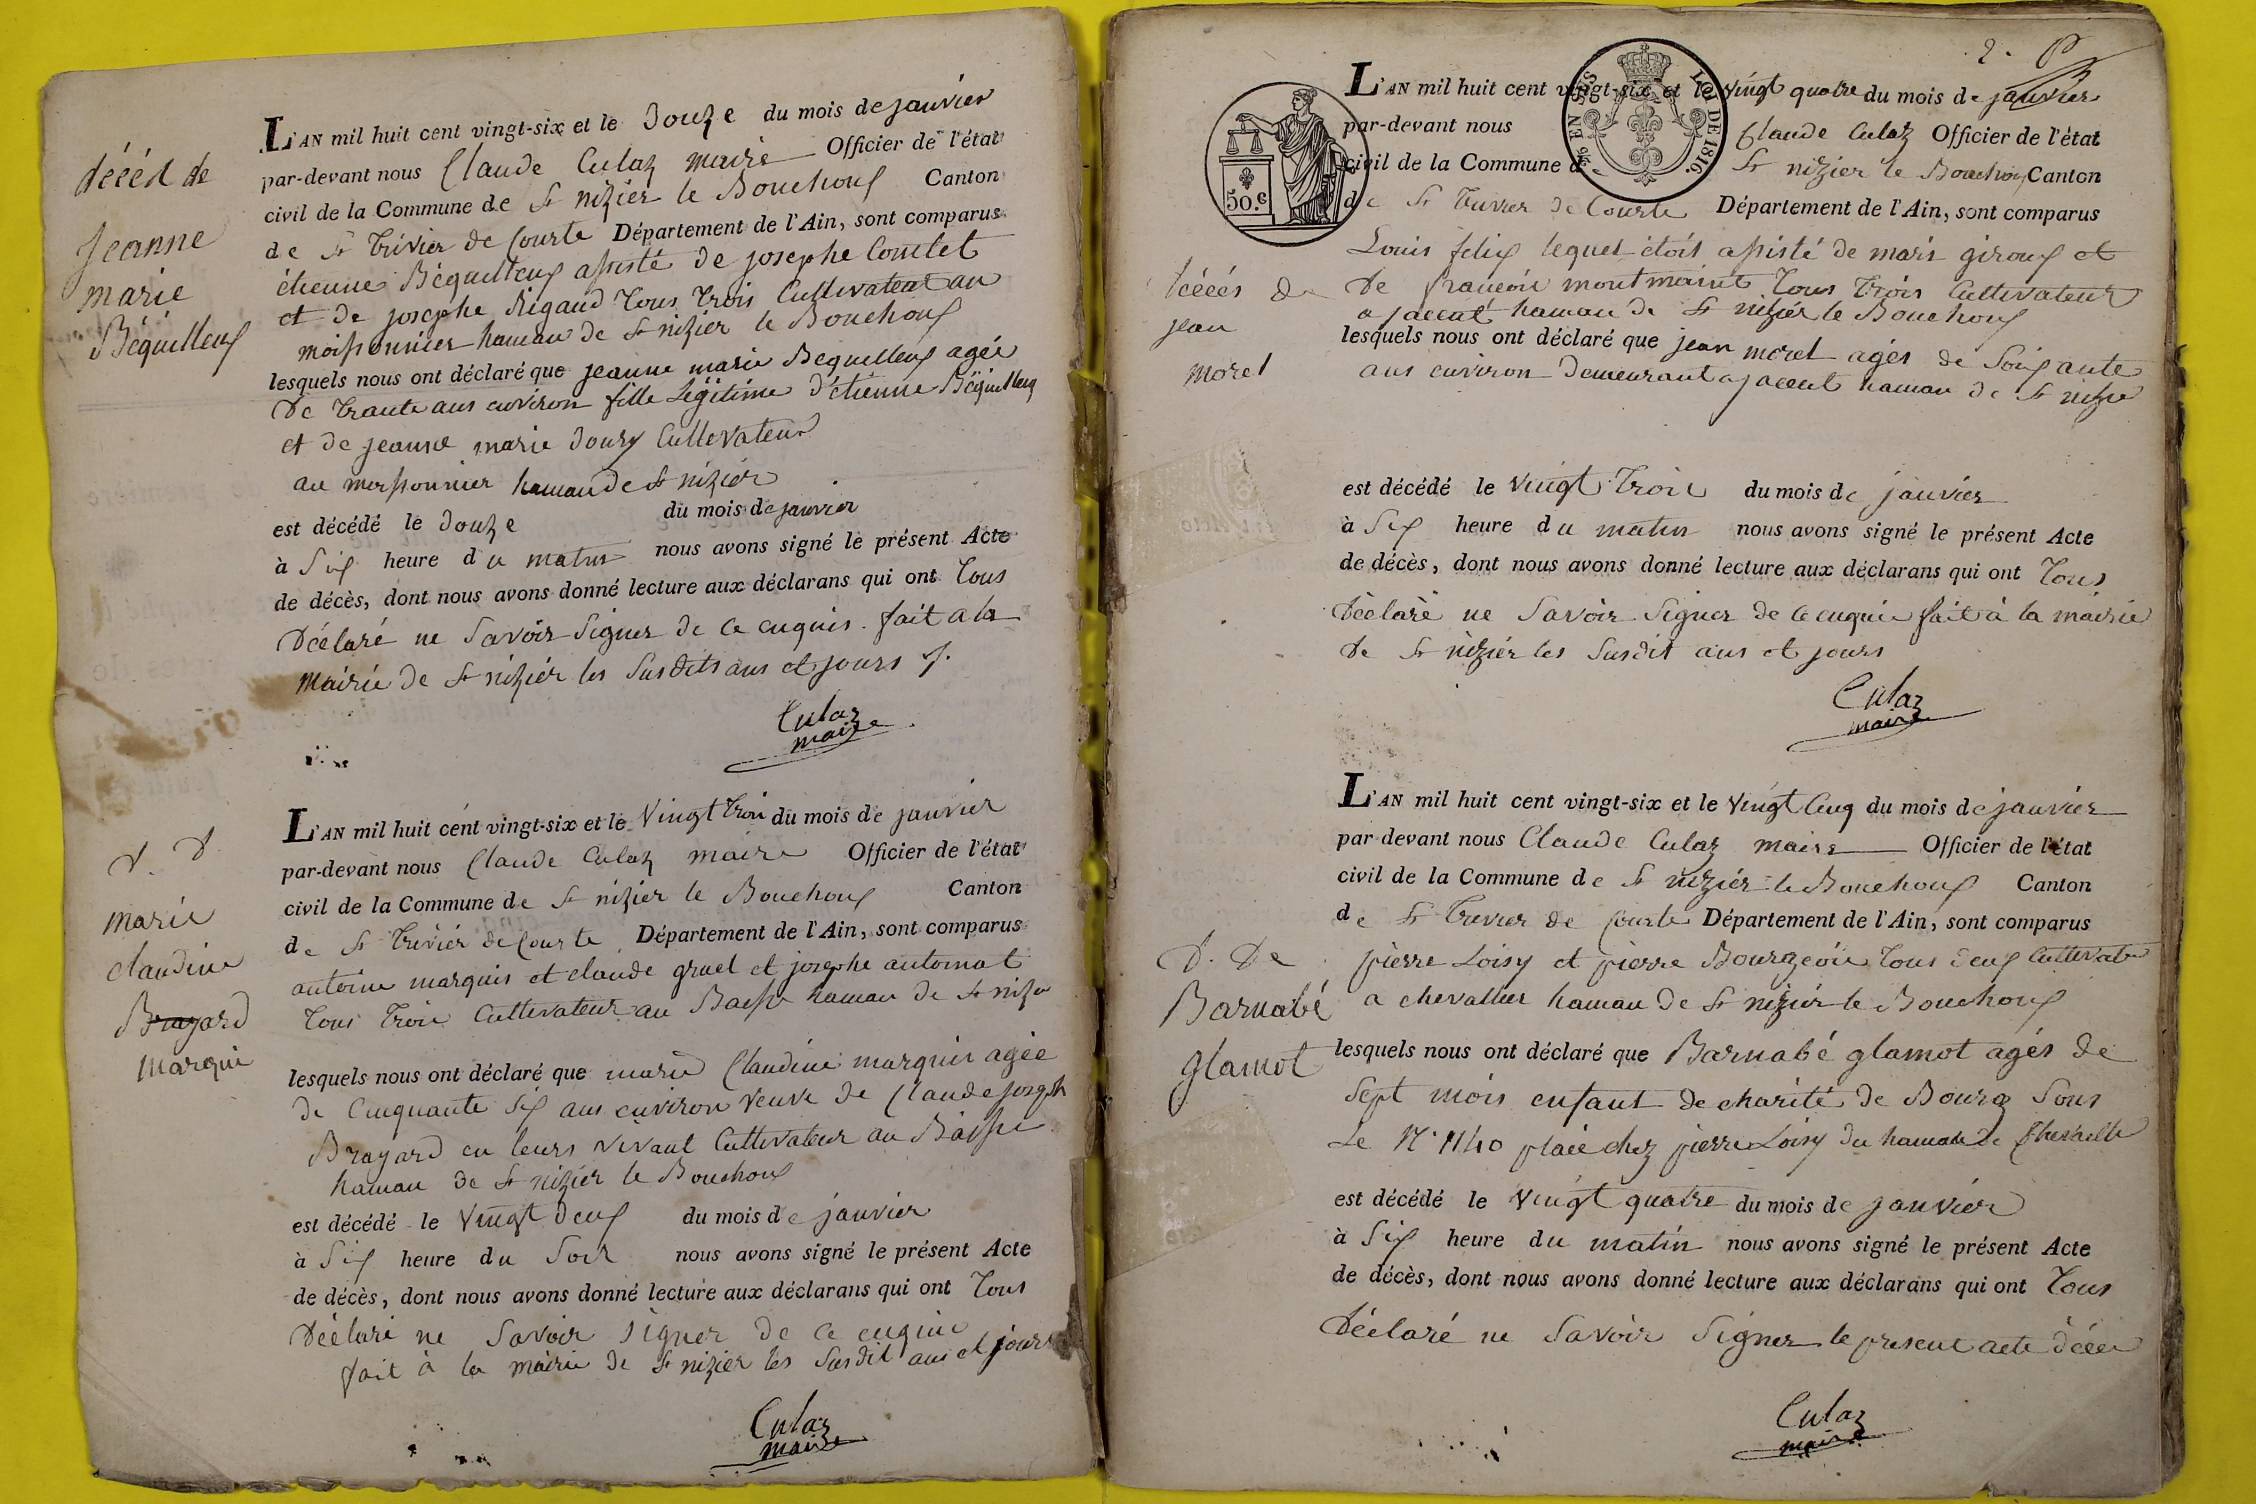 décéd de
Jeanne
marie
Béquilleux
L'AN mil huit cent vingt-six et le Douze du mois de janvier
par-devant nous Claude Culaz maire Officier de l'état
civil de la Commune de St nizier le Bouchoux Canton
de St Trivier de Courte Département de l'Ain, sont comparus
étienne Béquilleux assisté de josephe Comtet
et de josephe Rigaud Tous Trois Cultivateur au
moissonnier hamau de St nizier le Bouchoux
lesquels nous ont déclaré que jeanne marie Bequelleux agée
De Trante ans environ fille Légitime d'étienne Béquilleux
et de jeanne marie Doury Cultevateur
au morssonnier hamau de St nizier
est décédé le Douze du mois de janvier
à Six heure du matin nous avons signé le présent Acte
de décès, dont nous avons donné lecture aux déclarans qui ont Tous
Déclaré ne Savoir Signer de ce enquis. fait a la
Mairie de St nizier les Susdits ans et jours
Culaz
maire
D. D.
marie
claudine
Brayard
marquis
L'AN mil huit cent vingt-six et le Vingt Trois du mois de janvier
par-devant nous Claude Culaz maire Officier de l'état
civil de la Commune de St nizier le Bouchoux Canton
de St Trivier de Courte Département de l'Ain, sont comparus
antoine marquis et claude gruel et josephe automat
Tous Trois Cultivateur au Baisse hamau de St nizier
lesquels nous ont déclaré que marie Claudine marquis agée
de Cinquante Six ans environ veuve de Claude joseph
Brayard en leurs vivant Cultivateur au Baisse
hamau de St nizier le Bouchoux
est décédé le Vingt Deux du mois de janvier
à Six heure du Soir nous avons signé le présent Acte
de décès, dont nous avons donné lecture aux déclarans qui ont Tous
Déclaré ne Savoir Signer de ce enquis
fait à la mairie de St nizier les Susdit ans et jours
Culaz
maire
2.
50.c
% EN SUS
LOI DE 1816.
L'AN mil huit cent vingt-six et le Vingt quatre du mois de janvier
par-devant nous Claude Culaz Officier de l'état
civil de la Commune de St nizier le Bouchoux Canton
de St Trivier de Courte Département de l'Ain, sont comparus
Louis felix lequel étoit assisté de maris giroux et
De francois montmaint Tous Trois Cultivateur
a jaccat hamau de St nizier le Bouchoux
lesquels nous ont déclaré que jean morel agés de Soixante
ans environ Demeurant a jaccat hamau de St nizier
décés de
jean
morel
est décédé le Vingt Trois du mois de janvier
à Six heure du matin nous avons signé le présent Acte
de décès, dont nous avons donné lecture aux déclarans qui ont Tous
Déclaré ne Savoir Signer de ce enquis fait à la mairie
de St nizier les Susdit ans et jours
Culaz
maire
L'AN mil huit cent vingt-six et le Vingt Cinq du mois de janvier
par-devant nous Claude Culaz maire Officier de l'état
civil de la Commune de St nizier le Bouchoux Canton
de St Trevier de Courte Département de l'Ain, sont comparus
pierre Loisy et pierre Bourgeois Tous deux Cultivateur
a chevallier hamau de St nizier le Bouchoux
D. De
Barnabé
glamot
lesquels nous ont déclaré que Barnabé glamot agés de
Sept mois enfant de charité de Bourg Sous
Le N° 1140 placé chez pierre Loisy du hamau de
est décédé le Vingt quatre du mois de janvier
à Six heure du matin nous avons signé le présent Acte
de décès, dont nous avons donné lecture aux déclarans qui ont Tous
Déclaré ne Savoir Signer le present acte décés
Culaz
maire